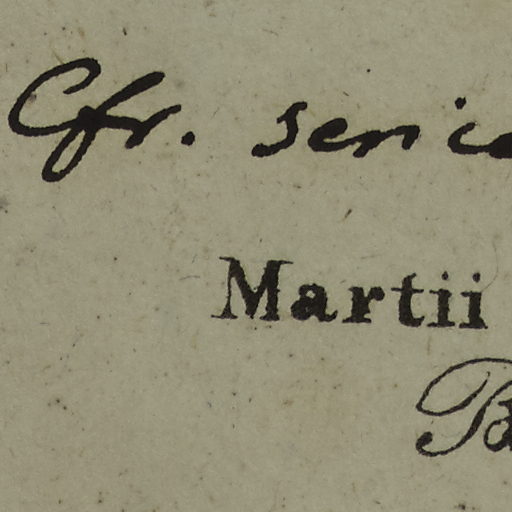 Cfr. serice
Martii
Ba